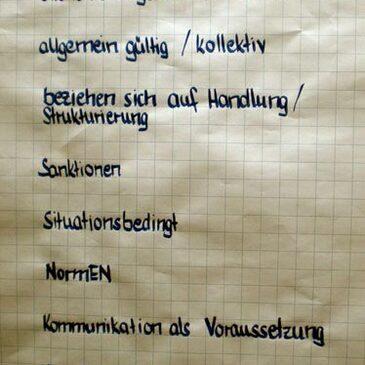 allgemein gültig / kollektiv
beziehen sich auf Handlung /
Strukturierung
Sanktionen
Situationsbedingt
NormEN
Kommunikation als Voraussetzung